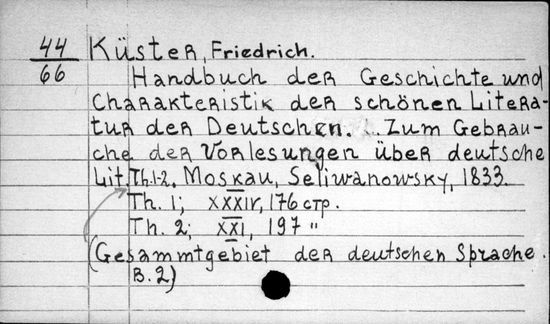 44
66
Küster, Friedrich.
Handbuch der Geschichte und
Charakteristik der schönen Litera-
tur der Deutschen. ... Zum Gebrau-
che der Vorlesungen über deutsche
Lit. Th.1-2. Moskau, Seliwanowsky, 1833.
Th. 1; XXXIV, 176 стр.
Th. 2; XXI, 197 "
(Gesammtgebiet der deutschen Sprache.
B. 2)